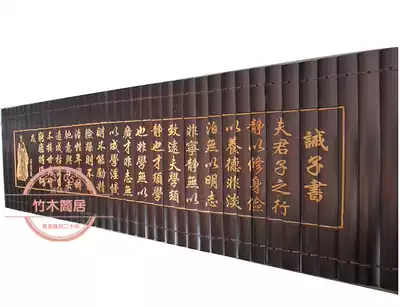 誡子書
夫君子之行
靜以修身儉
以養德非淡
泊無以明志
非寧靜無以
致遠夫學須
靜也才須學
也非學無以
廣才非志無
以成學慢
則不能勵精
險躁則不能
治性年與時
馳意與日
遂成枯
不接世
窮廬將復何
及
竹木簡居